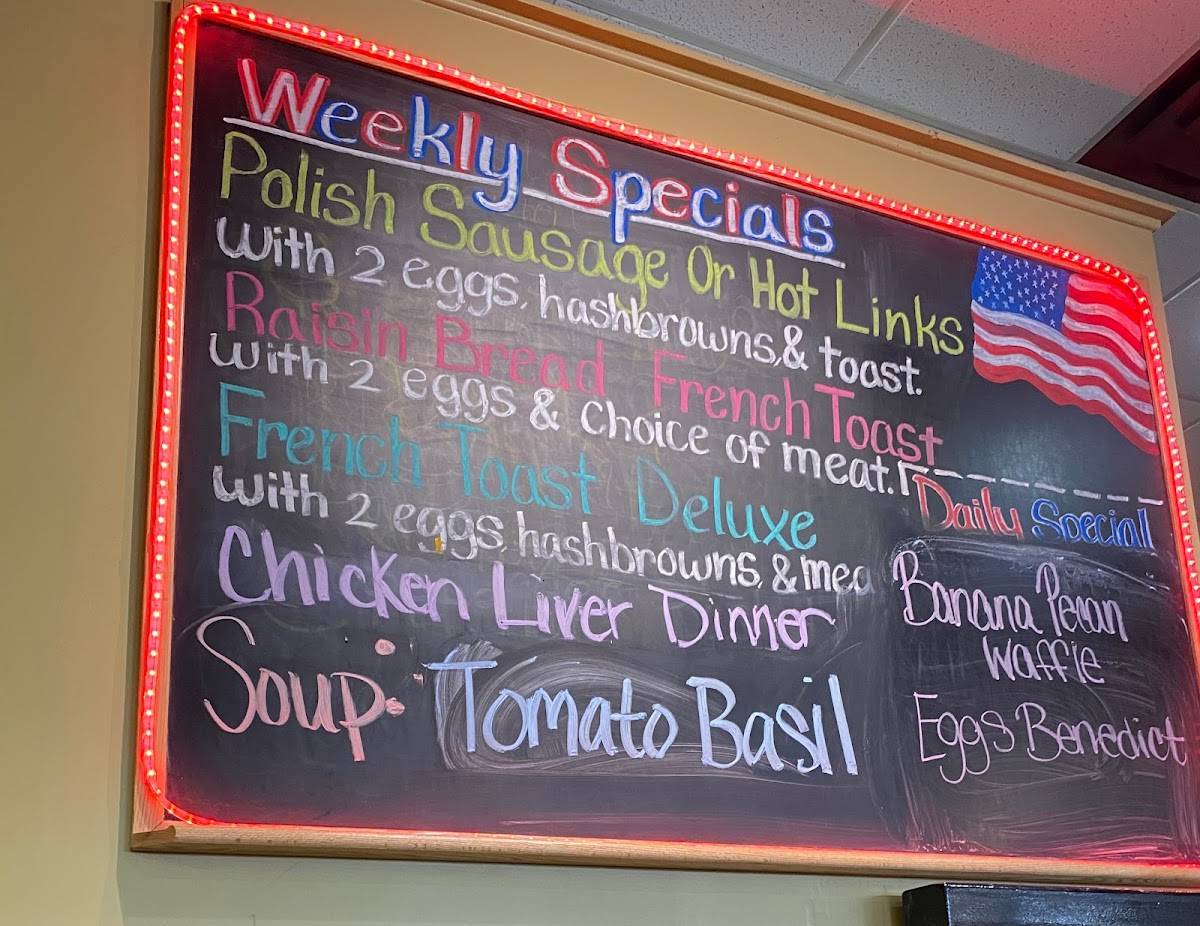 Weekly Specials
Polish Sausage Or Hot Links
with 2 eggs, hashbrowns, & toast.
Raisin Bread French Toast
with 2 eggs & choice of meat.
French Toast Deluxe
with 2 eggs, hashbrowns, & mea
Chicken Liver Dinner
Soup: Tomato Basil
Daily Special
Banana Pecan
Waffle
Eggs Benedict